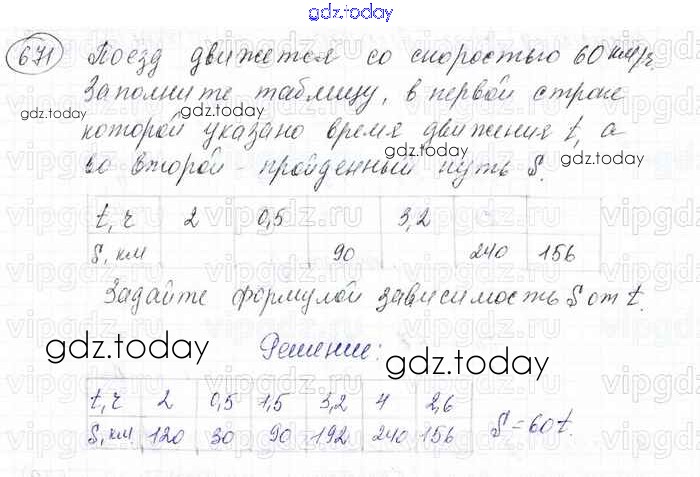 gdz.today
671 Поезд движется со скоростью 60 км/ч.
Заполните таблицу, в первой строке
gdz.today
которой указано время движения t, а
во второй - пройденный путь S.
gdz.today
gdz.today
t, ч 2 0,5 3,2
S, км 90 240 156
Задайте формулой зависимость S от t.
gdz.today
Решение:
gdz.today
t, ч 2 0,5 1,5 3,2 4 2,6
S, км 120 30 90 192 240 156 S=60t.
gdz.today
gdz.today